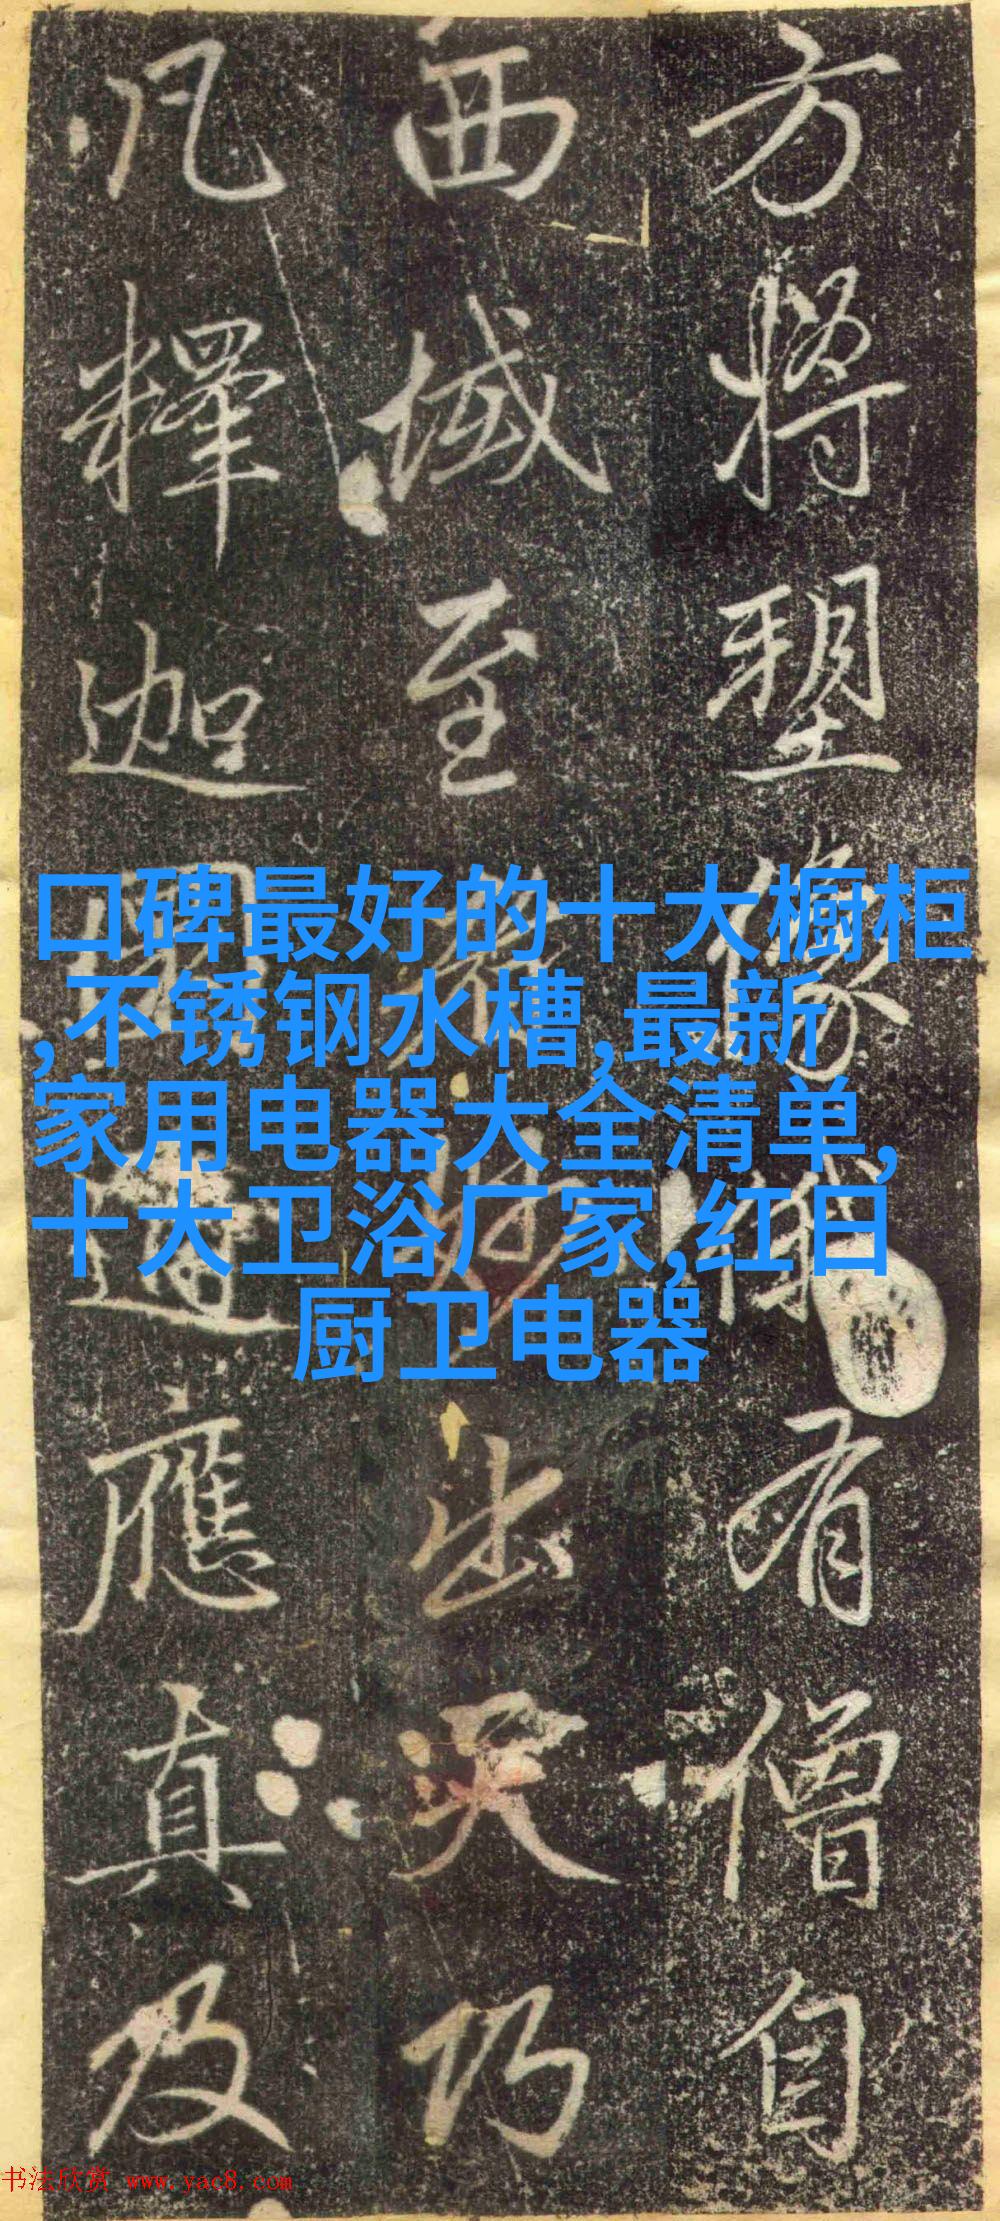 方將塑像俄有僧自
西域至妙出天巧
凡釋迦應真及
口碑最好的十大橱柜
,不锈钢水槽,最新
家用电器大全清单,
十大卫浴厂家,红日
厨卫电器
书法欣赏 www.yac8.com